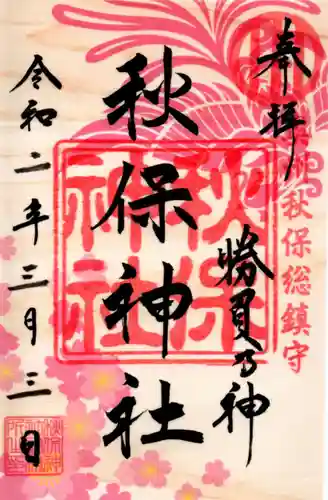 奉拝
秋保総鎮守
勝負の神
秋保神社
秋保神社
令和二年三月三日